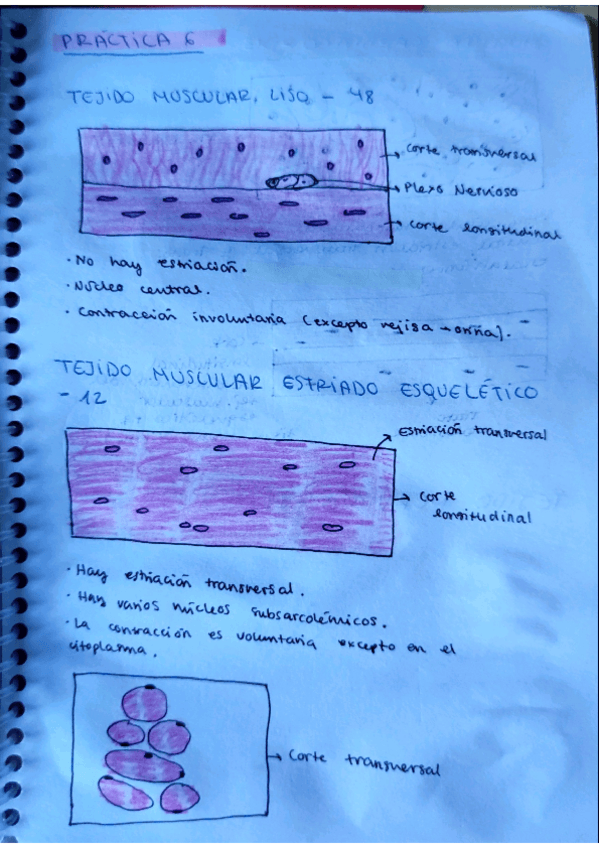 PRÁCTICA 6
TEJIDO MUSCULAR LISO - 48
corte transversal
Plexo Nervioso
corte longitudinal
· No hay estriación.
· Núcleo central.
· Contracción involuntaria (excepto vejiga → orina).
TEJIDO MUSCULAR ESTRIADO ESQUELÉTICO
- 12
estriación transversal
corte
longitudinal
· Hay estriación transversal.
· Hay varios núcleos subsarcolémicos.
· La contracción es voluntaria excepto en el
citoplasma.
Corte transversal